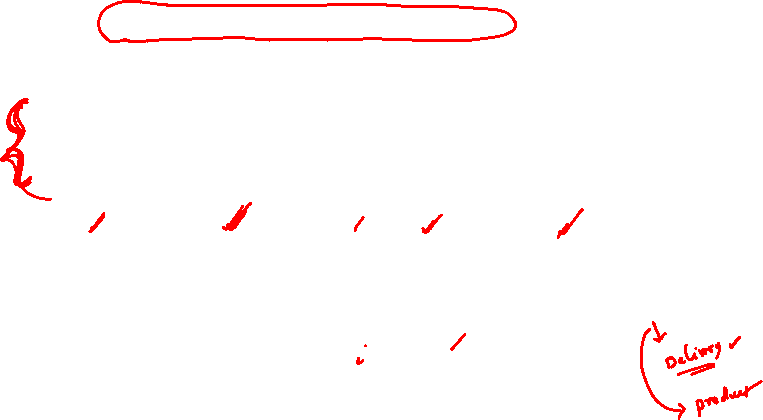 Delivery
product